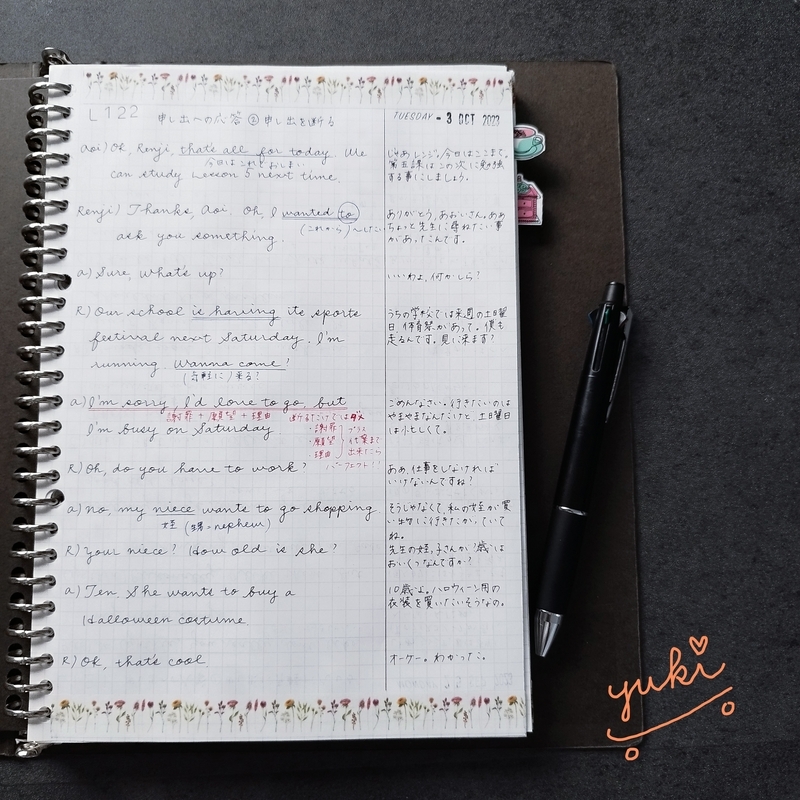 L122 申し出への応答② 申し出を断る
TUESDAY - 3 OCT 2023
Aoi) Ok, Renji, that's all for today. We
今日はこれでおしまい
can study Lesson 5 next time.
じゃあレンジ、今日はここまで。
第五課はこの次に勉強
する事にしましょう。
Renji) Thanks, Aoi. Oh, I wanted to
(これから)〜したい
ask you something.
ありがとう、あおいさん。ああ
ちょっと先生に尋ねたい事
があったんです。
a) Sure, what's up?
いいわよ、何かしら?
R) Our school is having its sports
festival next Saturday. I'm
running. Wanna come?
(気軽に)来る?
うちの学校では来週の土曜
日、体育祭があって。僕も
走るんです。見に来ます?
a) I'm sorry, I'd love to go, but
謝罪 + 願望 + 理由
I'm busy on Saturday
断るだけではダメ
・謝罪
・願望
・理由
プラス
代案まで
出来たら
パーフェクト!!
ごめんなさい。行きたいのは
やまやまなんだけど、土曜日
は忙しくて。
R) Oh, do you have to work?
ああ、仕事をしなければ
いけないんですね?
a) No, my niece wants to go shopping.
姪 (甥=nephew)
そうじゃなくて、私の姪が買
い物に行きたがっていて
ね。
R) Your niece? How old is she?
先生の姪っ子さんか?歳は
おいくつなんですか?
a) Ten. She wants to buy a
Halloween costume
10歳よ。ハロウィーン用の
衣装を買いたいそうなの。
R) Ok, that's cool
オーケー。わかった。
yuki